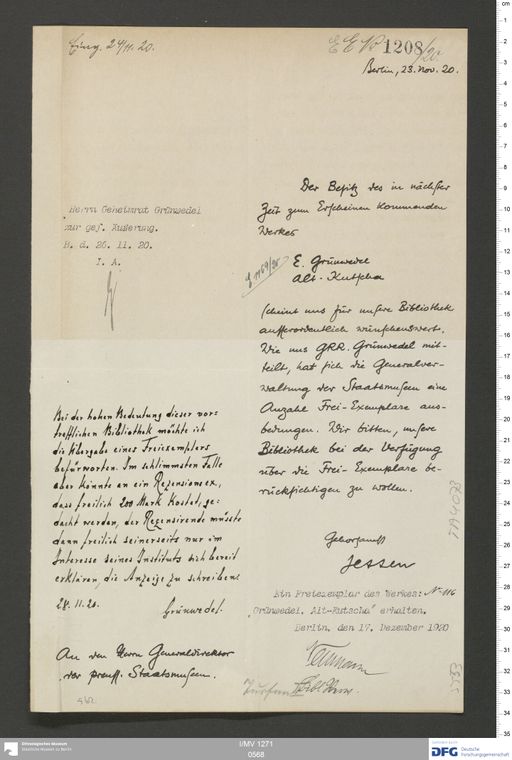 Eing. 24/11. 20.
1208/20
Berlin, 23. Nov. 20.
Der Besitz des in nächster
Zeit zum Erscheinen kommenden
Werkes
E. Grünwedel
Alt-Kutscha
scheint uns für unsere Bibliothek
ausserordentlich wünschenswert.
Wie uns GRR. Grünwedel mit-
teilt, hat sich die Generalver-
waltung der Staatsmuseen eine
Anzahl Frei-Exemplare aus-
bedungen. Wir bitten, unsere
Bibliothek bei der Verfügung
über die Frei-Exemplare be-
rücksichtigen zu wollen.
Gehorsamst
Jessen
Herrn Geheimrat Grünwedel
zur gef. Äußerung.
B. d. 26. 11. 20.
I. A.
Bei der hohen Bedeutung dieser vor-
trefflichen Bibliothek möchte ich
die Übergabe eines Freiexemplars
befürworten. Im schlimmsten Falle
aber könnte an ein Rezensionsex.,
dass freilich 200 Mark kostet, ge-
dacht werden, der Rezensirende müsste
dann freilich seinerseits nur im
Interesse seines Instituts sich bereit
erklären, die Anzeige zu schreiben.
28. 11. 20. Grünwedel.
An den Herrn Generaldirektor
der preuß. Staatsmuseen.
Ein Freiexemplar des Werkes: No 116
"Grünwedel, Alt-Kutscha" erhalten.
Berlin, den 17. Dezember 1920
Ethnologisches Museum
Staatliche Museen zu Berlin
I/MV 1271
0568
DFG
Deutsche
Forschungsgemeinschaft